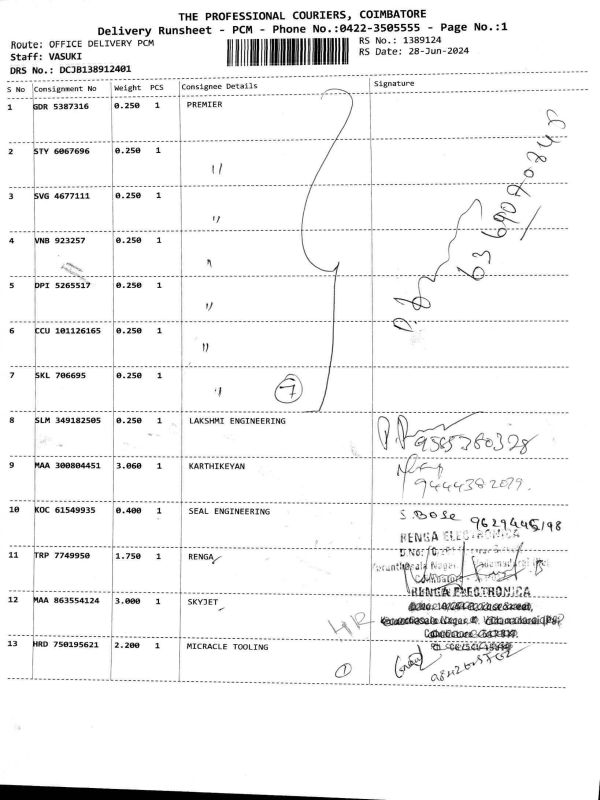 THE PROFESSIONAL COURIERS, COIMBATORE
Delivery Runsheet - PCM - Phone No.:0422-3505555 - Page No.:1
Route: OFFICE DELIVERY PCM
Staff: VASUKI
DRS No.: DCJB138912401
RS No.: 1389124
RS Date: 28-Jun-2024
S No Consignment No Weight PCS Consignee Details Signature
1 GDR 5387316 0.250 1 PREMIER
2 STY 6067696 0.250 1 "
3 SVG 4677111 0.250 1 "
4 VNB 923257 0.250 1 "
5 DPI 5265517 0.250 1 "
6 CCU 101126165 0.250 1 "
7 SKL 706695 0.250 1 " 7
8 SLM 349182505 0.250 1 LAKSHMI ENGINEERING
9 MAA 300804451 3.060 1 KARTHIKEYAN
9444382079.
10 KOC 61549935 0.400 1 SEAL ENGINEERING S. BOSE 9629445198
RENGA ELECTRONICA
11 TRP 7749950 1.750 1 RENGA
Coimbatore
12 MAA 863554124 3.000 1 SKYJET
RENGA ELECTRONICA
13 HRD 750195621 2.200 1 MICRACLE TOOLING 1